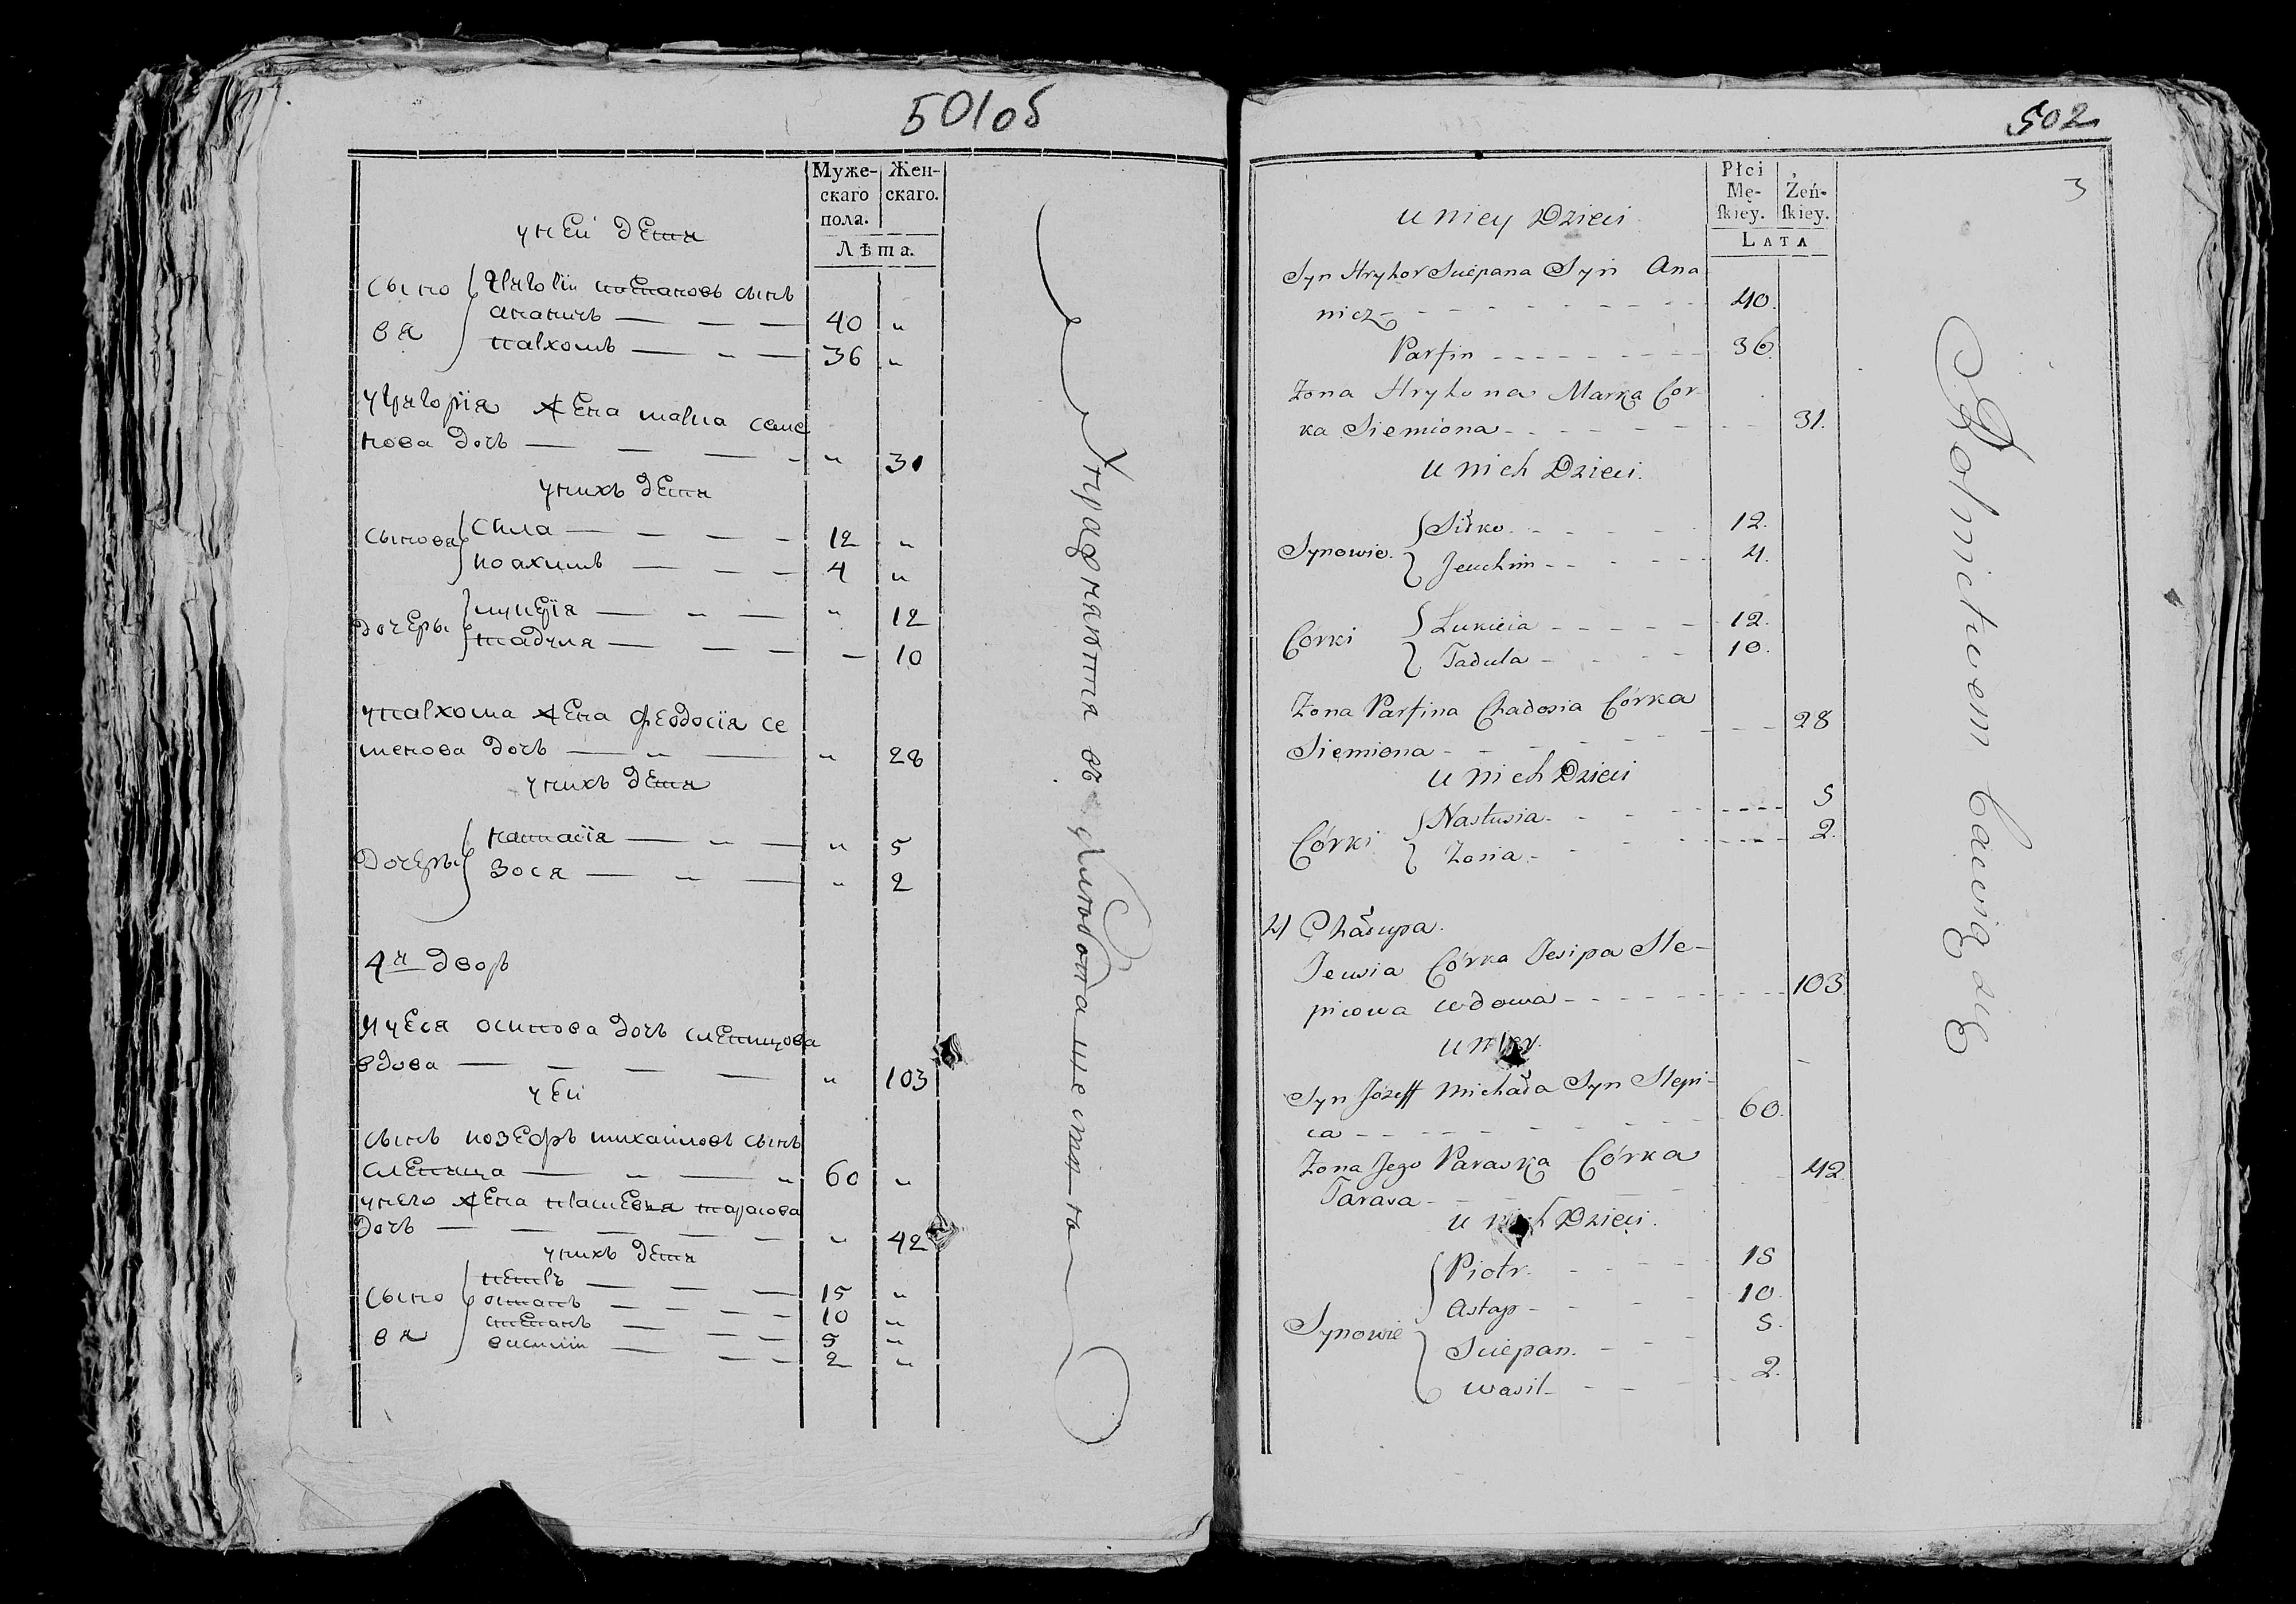 501об
Муже-
скаго
пола.
Жен-
скаго.
Лѣта.
у ней дети
сыно
вя
Григории степановъ сынъ
ананичъ — — — 40 „
пархомъ — „ — 36 „
у григория жена марка семе
нова дочь — — — „ 31
у нихъ дети
сыновя
Сила — — — — 12 „
иоахимъ — — — 4 „
дочеры
луцеия — „ — „ 12
тадуля — — — — 10
у пархома жена феодосия се
менова дочь — „ — „ 28
у нихъ дети
дочеры
настасия — „ — „ 5
Зося — „ — „ 2
4й дворъ
осипова дочь слепицова
вдова — — — — „ 103
у ей
сынъ иозефъ михаиловъ сынъ
слепица — „ — „ 60 „
у него жена парасевия тарасова
дочь — — — — — „ 42
у нихъ дети
сыно
вя
петръ — — — 15 „
остапъ — — — — 10 „
степанъ — — — 5 „
василии — — — 2 „
упражняются въ
502
3
Płci
Mę-
ſkiey.
Żeń-
ſkiey.
LATA
u niey Dzieci
Syn Hryhor Sciepana Syn Ana
nicz - - - - - - - - 40.
Parfin - - - - - - - - 36.
Zona Hryhora Marka Cor-
ka Siemiona - - - - - - - 31.
u nich Dzieci.
Synowie.
Siłko - - - - 12.
Jeuchim - - - - - 4.
Córki
Lukicia - - - - - 12.
Tadula - - - - 10.
Zona Parfina Chadosia Córka
Siemiona - - - - - - - 28
u nich Dzieci
Córki
Nastusia - - - - - - - 5
Zosia - - - - - - - 2.
4 Chałupa.
Jeusia Córka Jesipa Sle-
picowa wdowa - - - - - - - - 103.
u niey.
Syn Józeff Michała Syn Slepi-
ca - - - - - - - - 60.
Zona Jego Paraska Córka
Tarasa - - - - - - 42.
u nich Dzieci.
Synowie
Piotr - - - - - 15
Astap - - - - 10.
Sciepan. - - - 5.
Wasil - - - - 2.
Rolnictwem bawią się